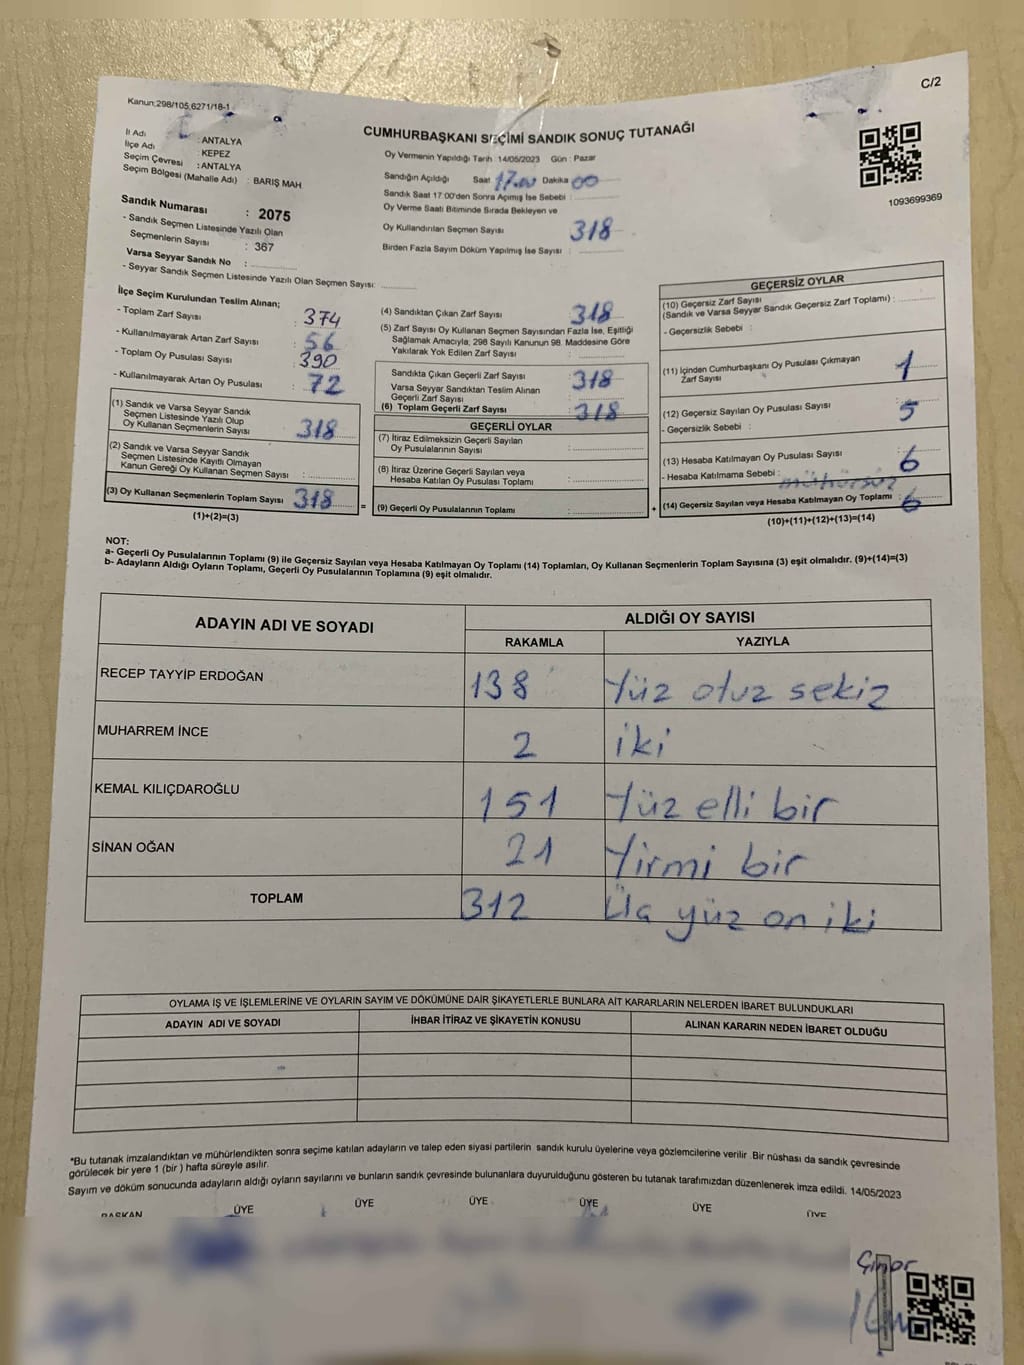 C/2
Kanun:298/105,6271/18-1
CUMHURBAŞKANI SEÇİMİ SANDIK SONUÇ TUTANAĞI
İl Adı : ANTALYA
İlçe Adı : KEPEZ
Seçim Çevresi : ANTALYA
Seçim Bölgesi (Mahalle Adı) : BARIŞ MAH
Sandık Numarası : 2075
- Sandık Seçmen Listesinde Yazılı Olan
Seçmenlerin Sayısı : 367
Varsa Seyyar Sandık No :
- Seyyar Sandık Seçmen Listesinde Yazılı Olan Seçmen Sayısı:
Oy Vermenin Yapıldığı Tarih 14/05/2023 Gün : Pazar
Sandığın Açıldığı Saat 17.00 Dakika 00
Sandık Saat 17:00'den Sonra Açımış İse Sebebi :
Oy Verme Saati Bitiminde Sırada Bekleyen ve
Oy Kullandırılan Seçmen Sayısı : 318
Birden Fazla Sayım Döküm Yapılmış İse Sayısı :
1093699369
İlçe Seçim Kurulundan Teslim Alınan;
- Toplam Zarf Sayısı : 374
- Kullanılmayarak Artan Zarf Sayısı : 56
- Toplam Oy Pusulası Sayısı : 390
- Kullanılmayarak Artan Oy Pusulası : 72
(1) Sandık ve Varsa Seyyar Sandık
Seçmen Listesinde Yazılı Olup
Oy Kullanan Seçmenlerin Sayısı : 318
(2) Sandık ve Varsa Seyyar Sandık
Seçmen Listesinde Kayıtlı Olmayan
Kanun Gereği Oy Kullanan Seçmen Sayısı :
(3) Oy Kullanan Seçmenlerin Toplam Sayısı : 318
(1)+(2)=(3)
(4) Sandıktan Çıkan Zarf Sayısı : 318
(5) Zarf Sayısı Oy Kullanan Seçmen Sayısından Fazla İse, Eşitliği
Sağlamak Amacıyla; 298 Sayılı Kanunun 98. Maddesine Göre
Yakılarak Yok Edilen Zarf Sayısı :
Sandıkta Çıkan Geçerli Zarf Sayısı : 318
Varsa Seyyar Sandıktan Teslim Alınan
Geçerli Zarf Sayısı :
(6) Toplam Geçerli Zarf Sayısı : 318
GEÇERLİ OYLAR
(7) İtiraz Edilmeksizin Geçerli Sayılan
Oy Pusulalarının Sayısı :
(8) İtiraz Üzerine Geçerli Sayılan veya
Hesaba Katılan Oy Pusulası Toplamı :
= (9) Geçerli Oy Pusulalarının Toplamı :
GEÇERSİZ OYLAR
(10) Geçersiz Zarf Sayısı
(Sandık ve Varsa Seyyar Sandık Geçersiz Zarf Toplamı) :
- Geçersizlik Sebebi :
(11) İçinden Cumhurbaşkanı Oy Pusulası Çıkmayan
Zarf Sayısı : 1
(12) Geçersiz Sayılan Oy Pusulası Sayısı : 5
- Geçersizlik Sebebi :
(13) Hesaba Katılmayan Oy Pusulası Sayısı : 6
- Hesaba Katılmama Sebebi : mühürsüz
+ (14) Geçersiz Sayılan veya Hesaba Katılmayan Oy Toplamı : 6
(10)+(11)+(12)+(13)=(14)
NOT:
a- Geçerli Oy Pusulalarının Toplamı (9) ile Geçersiz Sayılan veya Hesaba Katılmayan Oy Toplamı (14) Toplamları, Oy Kullanan Seçmenlerin Toplam Sayısına (3) eşit olmalıdır. (9)+(14)=(3)
b- Adayların Aldığı Oyların Toplamı, Geçerli Oy Pusulalarının Toplamına (9) eşit olmalıdır.
ADAYIN ADI VE SOYADI ALDIĞI OY SAYISI
RAKAMLA YAZIYLA
RECEP TAYYİP ERDOĞAN 138 Yüz otuz sekiz
MUHARREM İNCE 2 iki
KEMAL KILIÇDAROĞLU 151 Yüz elli bir
SİNAN OĞAN 21 Yirmi bir
TOPLAM 312 Üç yüz on iki
OYLAMA İŞ VE İŞLEMLERİNE VE OYLARIN SAYIM VE DÖKÜMÜNE DAİR ŞİKAYETLERLE BUNLARA AİT KARARLARIN NELERDEN İBARET BULUNDUKLARI
ADAYIN ADI VE SOYADI İHBAR İTİRAZ VE ŞİKAYETİN KONUSU ALINAN KARARIN NEDEN İBARET OLDUĞU
*Bu tutanak imzalandıktan ve mühürlendikten sonra seçime katılan adayların ve talep eden siyasi partilerin sandık kurulu üyelerine veya gözlemcilerine verilir .Bir nüshası da sandık çevresinde
görülecek bir yere 1 (bir ) hafta süreyle asılır.
Sayım ve döküm sonucunda adayların aldığı oyların sayılarını ve bunların sandık çevresinde bulunanlara duyurulduğunu gösteren bu tutanak tarafımızdan düzenlenerek imza edildi. 14/05/2023
BAŞKAN ÜYE ÜYE ÜYE ÜYE ÜYE ÜYE